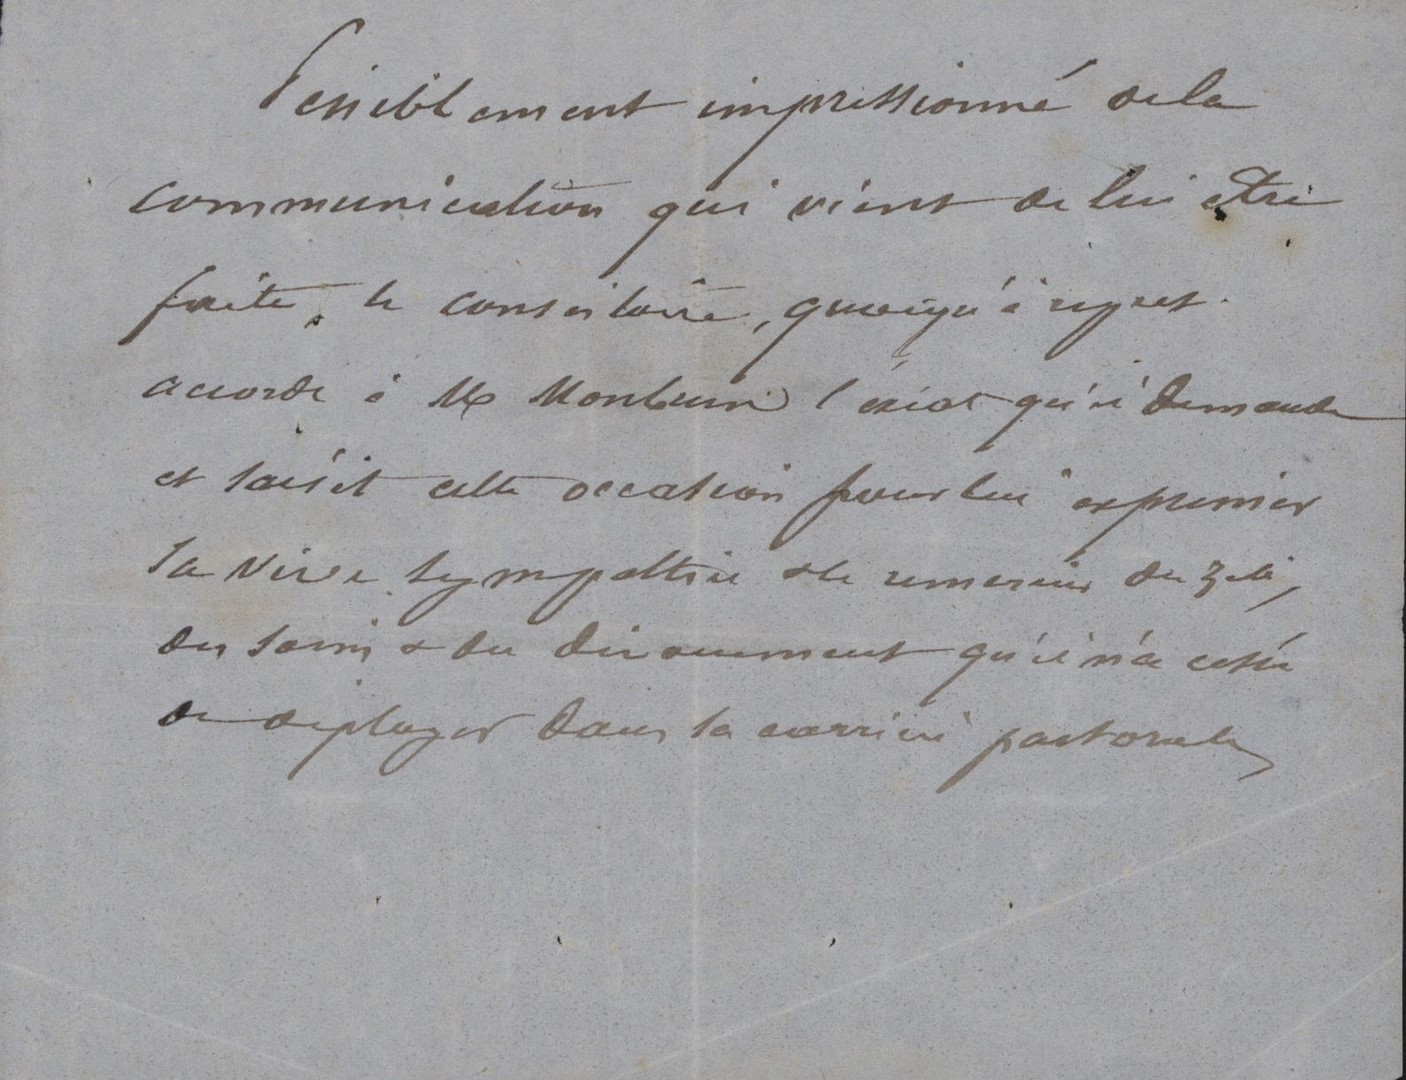 Péniblement impressionné de la
communication qui vient de lui être
faite, le consistoire, quoiqu'à regret
accorde à Mr l'exeat qu'il demande
et saisit cette occasion pour lui exprimer
sa vive sympathie & le remercier du zèle,
des soins & du dévouement qu'il n'a cessé
de déployer dans la carrière pastorale